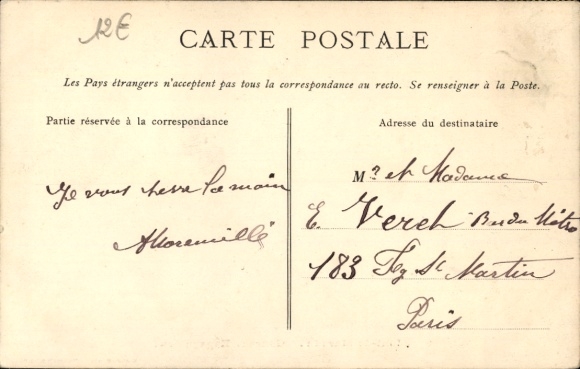 12€
CARTE POSTALE
Les Pays étrangers n'acceptent pas tous la correspondance au recto. Se renseigner à la Poste.
Partie réservée à la correspondance
Je vous serre la main
Adresse du destinataire
Mr et Madame
E. Verch
183 Fg St Martin
Paris